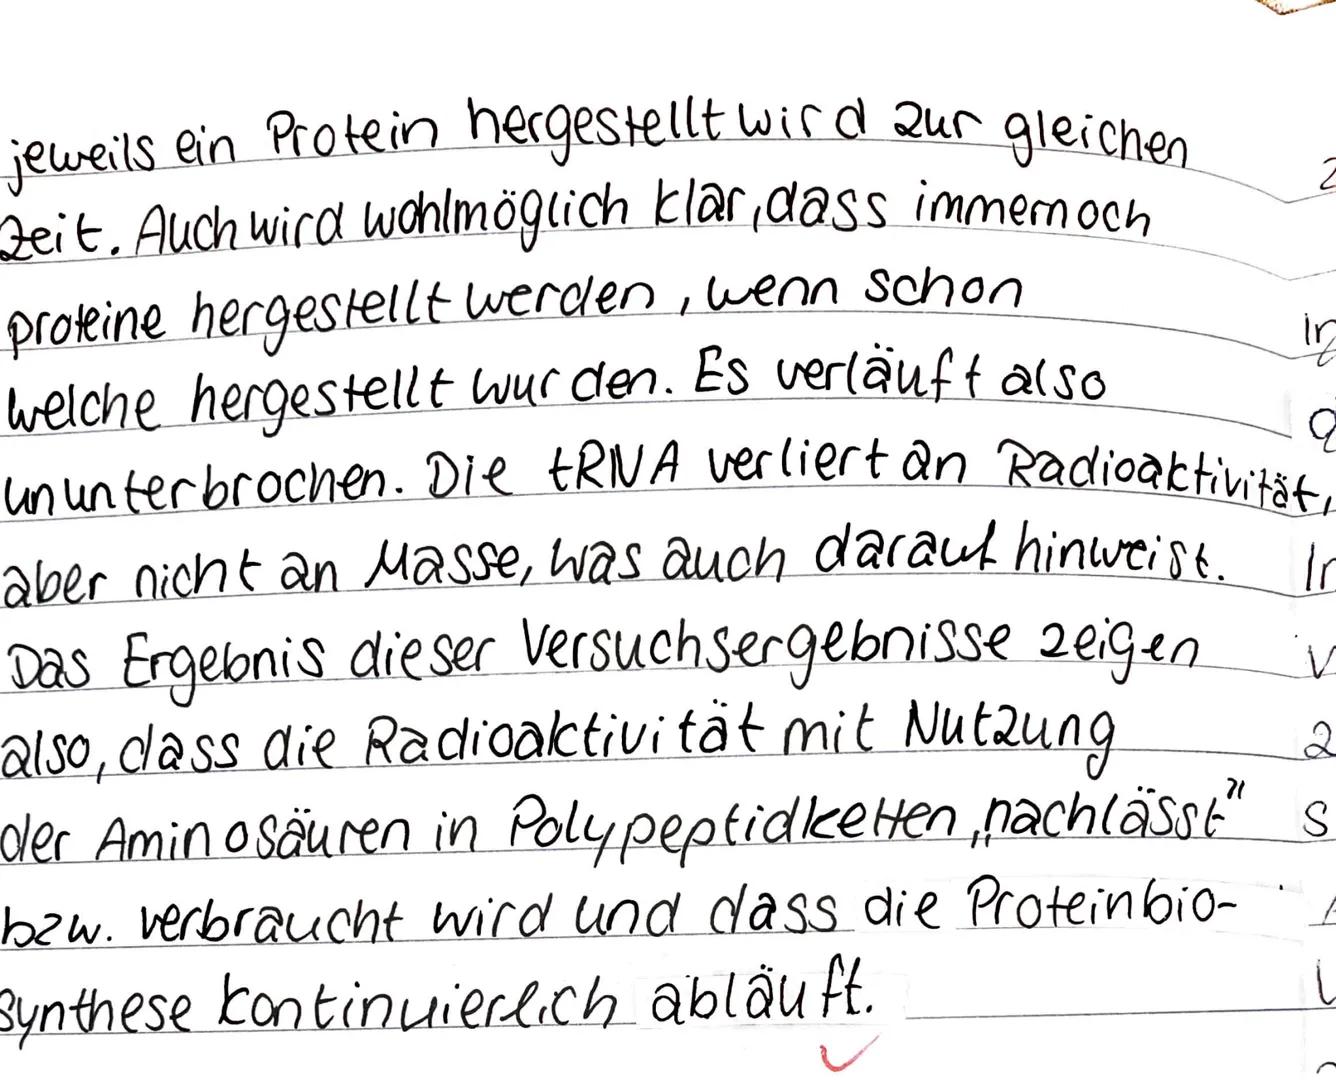 jeweils ein Protein hergestellt wird zur gleichen
Zeit. Auch wird wohlmöglich klar, dass immernoch
proteine hergestellt werden, wenn schon
welche hergestellt wurden. Es verläuft also
ununterbrochen. Die tRNA verliert an Radioaktivität,
aber nicht an Masse, was auch darauf hinweist.
Das Ergebnis dieser Versuchsergebnisse zeigen
also, dass die Radioaktivität mit Nutzung
der Aminosäuren in Polypeptidketten „nachlässt"
bzw. verbraucht wird und dass die Proteinbio-
synthese kontinuierlich abläuft.